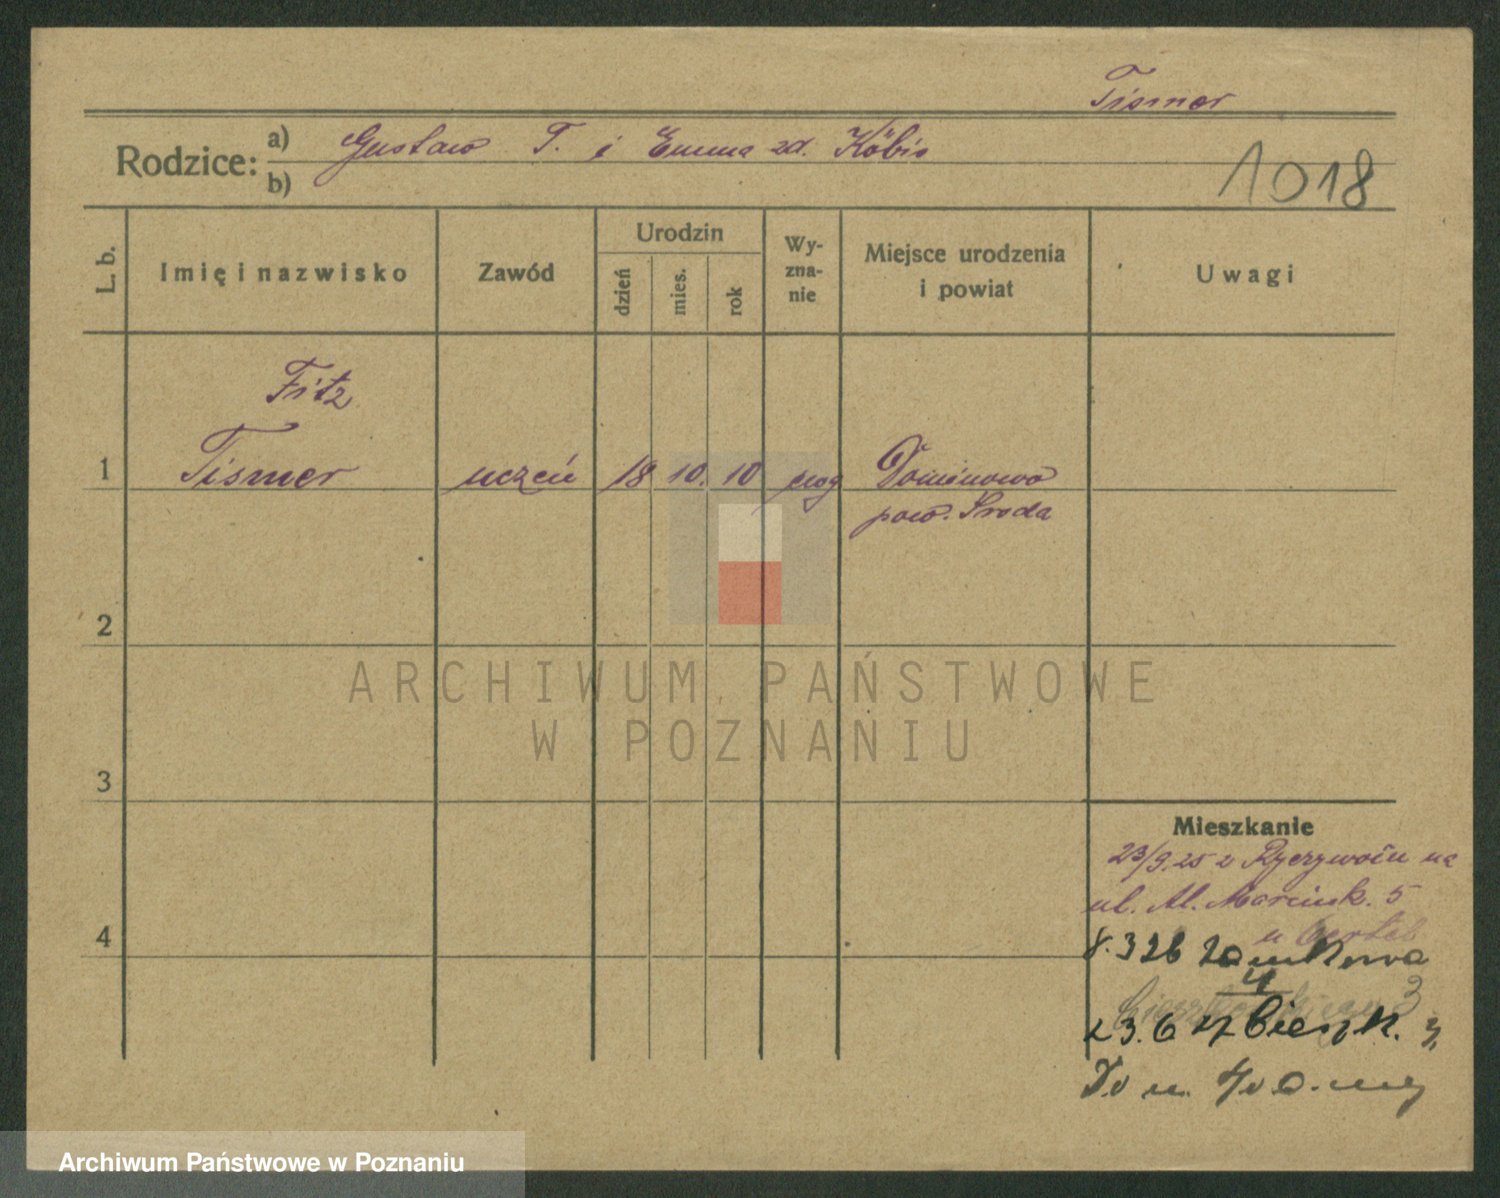 Tismer
Rodzice: a) Gustaw T. i Emma zd. Köbis
b)
1018
L. b.
Imię i nazwisko
Zawód
Urodzin
dzień
mies.
rok
Wy-
zna-
nie
Miejsce urodzenia
i powiat
Uwagi
Fitz
1 Tismer uczeń 18 10. 10 Dominowo
pow. Środa
2
3
4
ARCHIWUM PAŃSTWOWE
W POZNANIU
Mieszkanie
23/9.25 z Ryczywołu na
ul. Al. Marcink. 5
8.3 26 Zamkowa
4
3
23.6 27 Cieszk. 3,
Archiwum Państwowe w Poznaniu